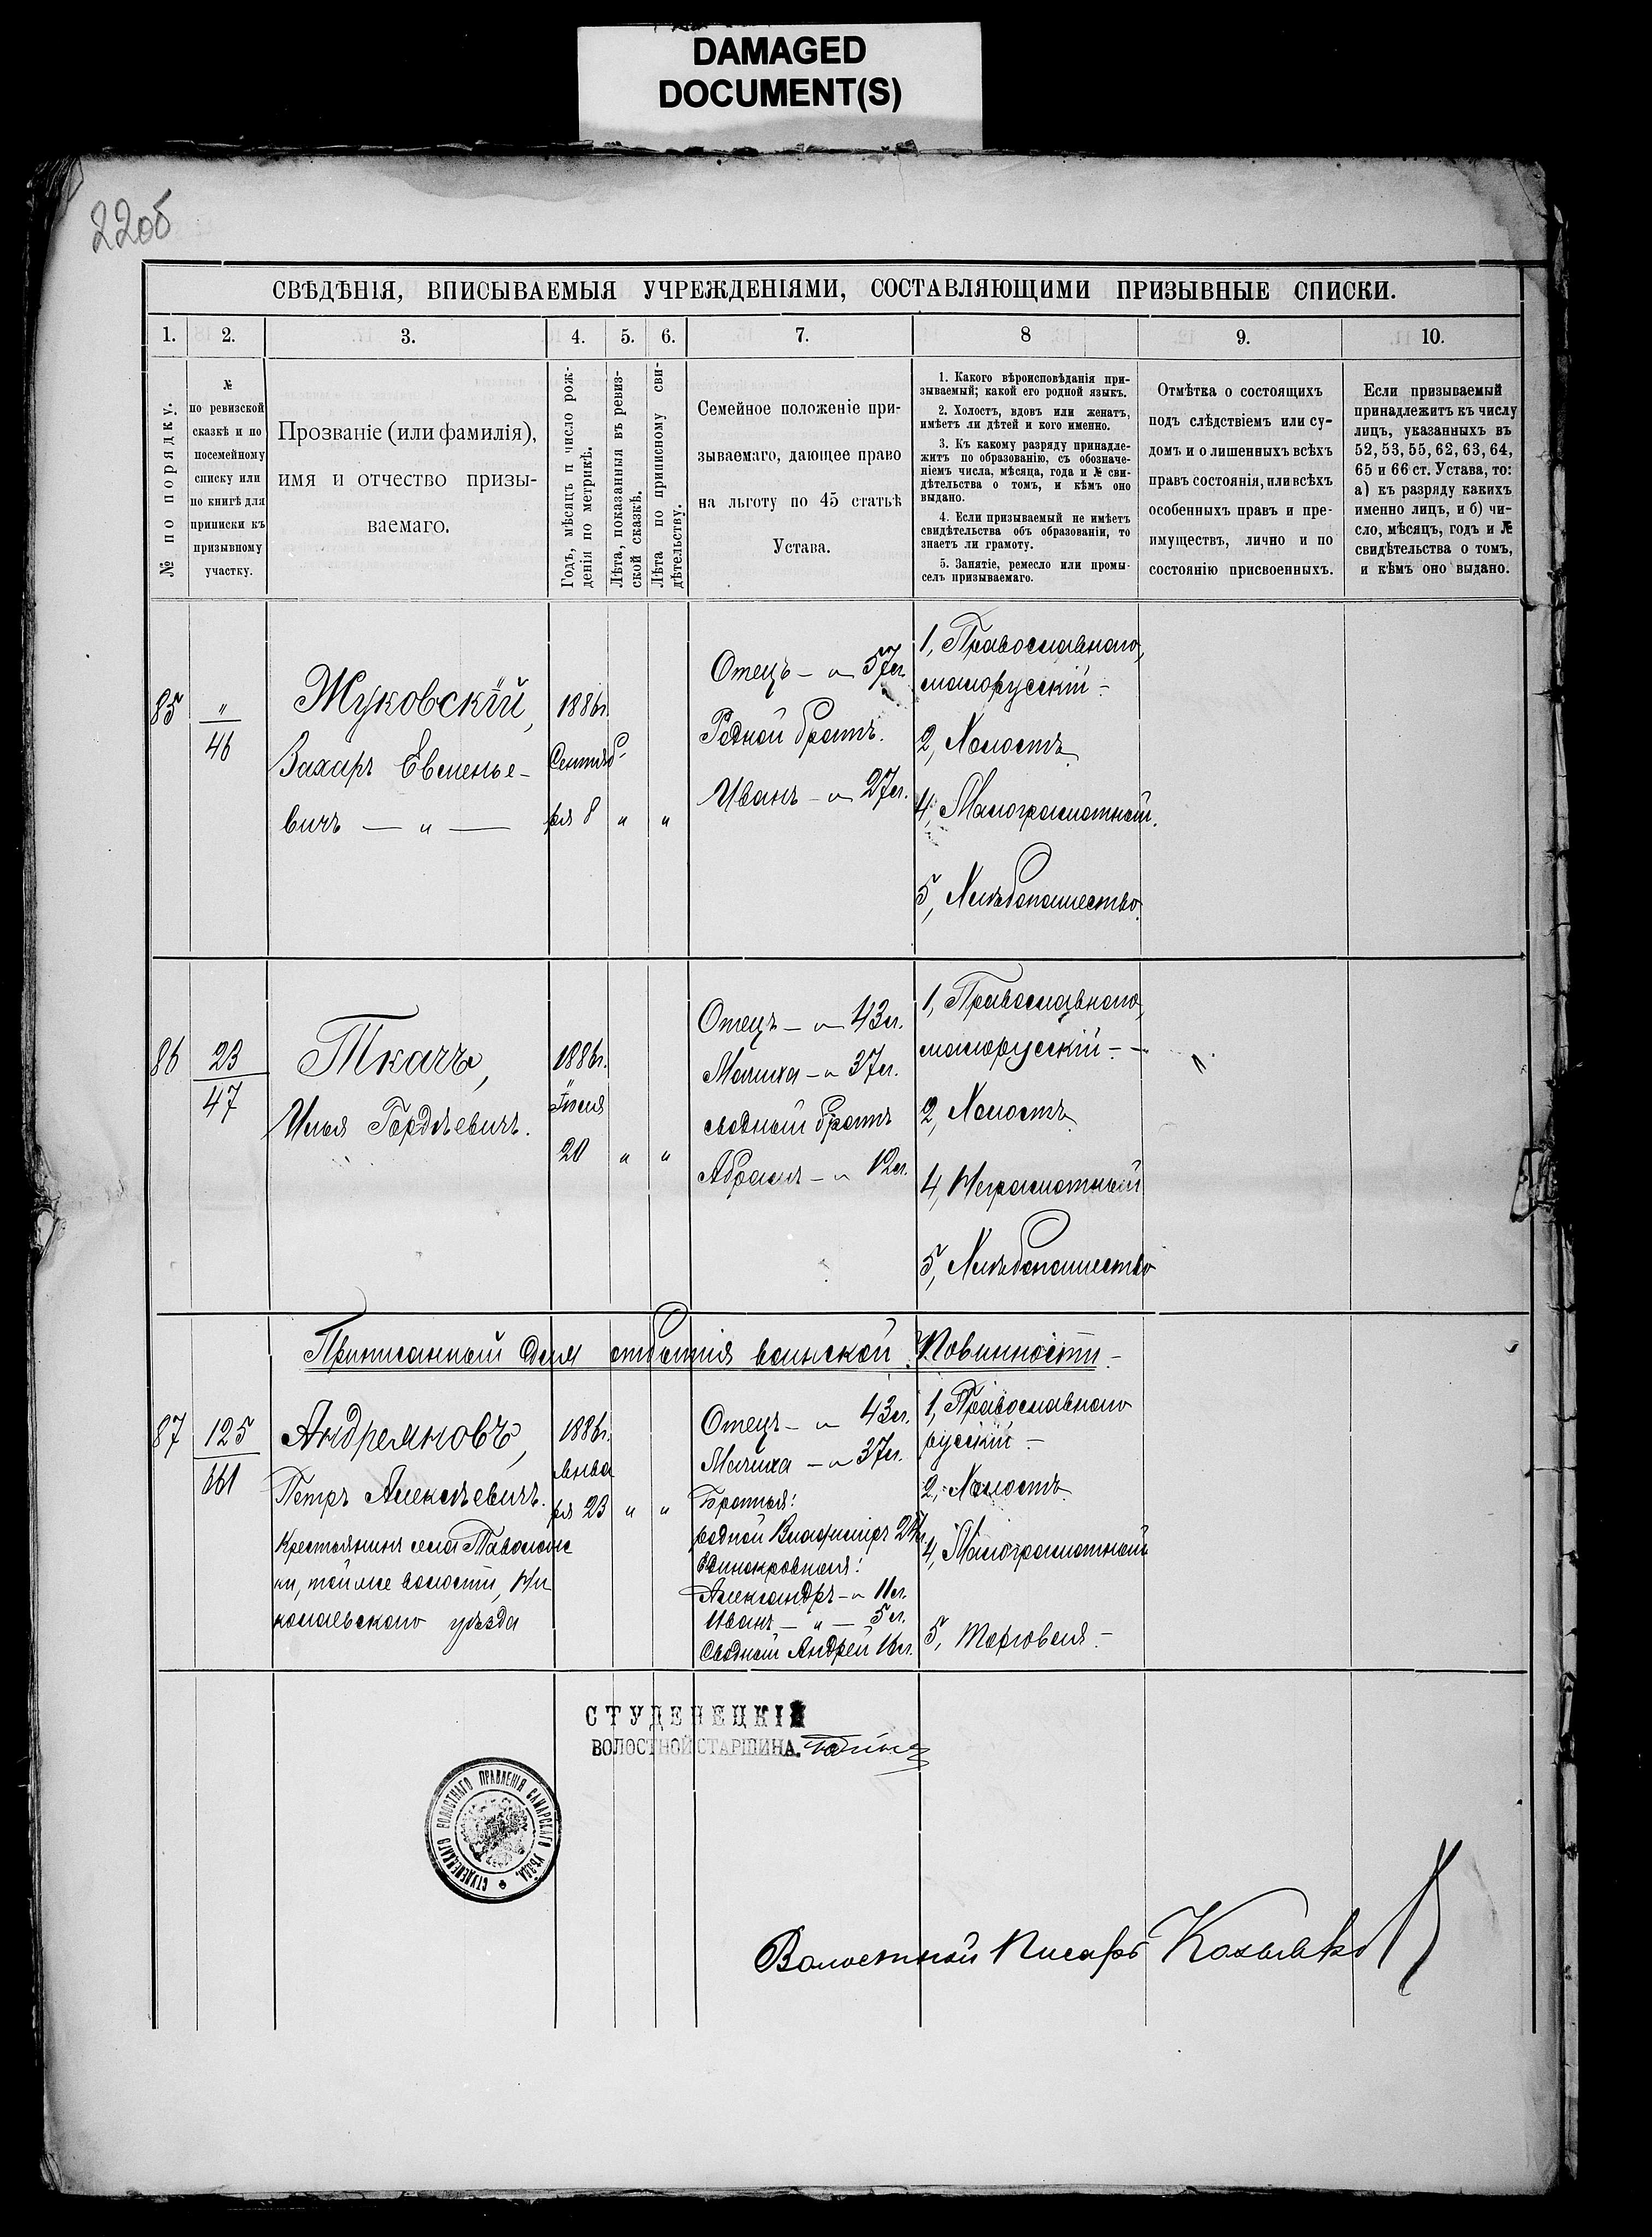 DAMAGED
DOCUMENT(S)
22об
СВѢДѢНІЯ, ВПИСЫВАЕМЫЯ УЧРЕЖДЕНІЯМИ, СОСТАВЛЯЮЩИМИ ПРИЗЫВНЫЕ СПИСКИ.
1. 2. 3. 4. 5. 6. 7. 8 9. 10.
№ по порядку.
№
по ревизской
сказкѣ и по
посемейному
списку или
по книгѣ для
приписки къ
призывному
участку.
Прозваніе (или фамилія),
имя и отчество призы-
ваемаго.
Годъ, мѣсяцъ и число рож-
денія по метрикѣ.
Лѣта, показанныя въ ревиз-
ской сказкѣ.
Лѣта по приписному сви-
дѣтельству.
Семейное положеніе при-
зываемаго, дающее право
на льготу по 45 статьѣ
Устава.
1. Какого вѣроисповѣданія при-
зываемый; какой его родной языкъ.
2. Холостъ, вдовъ или женатъ,
имѣетъ ли дѣтей и кого именно.
3. Къ какому разряду принадле-
житъ по образованію, съ обозначе-
ніемъ числа, мѣсяца, года и № сви-
дѣтельства о томъ, и кѣмъ оно
выдано.
4. Если призываемый не имѣетъ
свидѣтельства объ образованіи, то
знаетъ ли грамоту.
5. Занятіе, ремесло или промы-
селъ призываемаго.
Отмѣтка о состоящихъ
подъ слѣдствіемъ или су-
домъ и о лишенныхъ всѣхъ
правъ состоянія, или всѣхъ
особенныхъ правъ и пре-
имуществъ, лично и по
состоянію присвоенныхъ.
Если призываемый
принадлежитъ къ числу
лицъ, указанныхъ въ
52, 53, 55, 62, 63, 64,
65 и 66 ст. Устава, то:
а) къ разряду какихъ
именно лицъ, и б) чи-
сло, мѣсяцъ, годъ и №
свидѣтельства о томъ,
и кѣмъ оно выдано.
85
"
46
Жуковскій,
Захаръ Евсенье-
вичъ — " —
1886г.
Сентяб-
ря 8 " "
Отецъ — " 57л.
Родной братъ.
Иванъ — " 27л.
1, Православнаго,
малорусскій -
2, Холостъ
4, Малограмотный.
5, Хлѣбопашество.
86
23
47
Ткачъ,
Илья Гордѣевичъ.
1886г.
Іюля
20 " "
Отецъ — " 43л.
Мачиха — " 37л.
сводный братъ
Абрамъ — " 12л.
1, Православнаго,
малорусскій - -
2, Холостъ
4, Неграмотный
5, Хлѣбопашество
Приписанный для отбытія воинской Повинности -
87
125
161
Андреяновъ,
Петръ Алексѣевичъ.
Крестьянинъ села Таволож
ки, той же волости, Ни
колаевскаго уѣзда
1886г.
Янва
ря 23 " "
Отецъ — " 43л.
Мачиха — " 37л.
Братья:
родной Владиміръ
Единокровныя:
Александръ — " 11л.
Иванъ — " — 5л.
Сводный Андрей 16л.
1, Православнаго
русскій -
2, Холостъ
4, Малограмотный
5, Торговля. -
СТУДЕНЕЦКІЙ
ВОЛОСТНОЙ СТАРШИНА.
СТУДЕНЕЦКАГО ВОЛОСТНАГО ПРАВЛЕНІЯ САМАРСКАГО УѢЗДА.
Волостной Писарь